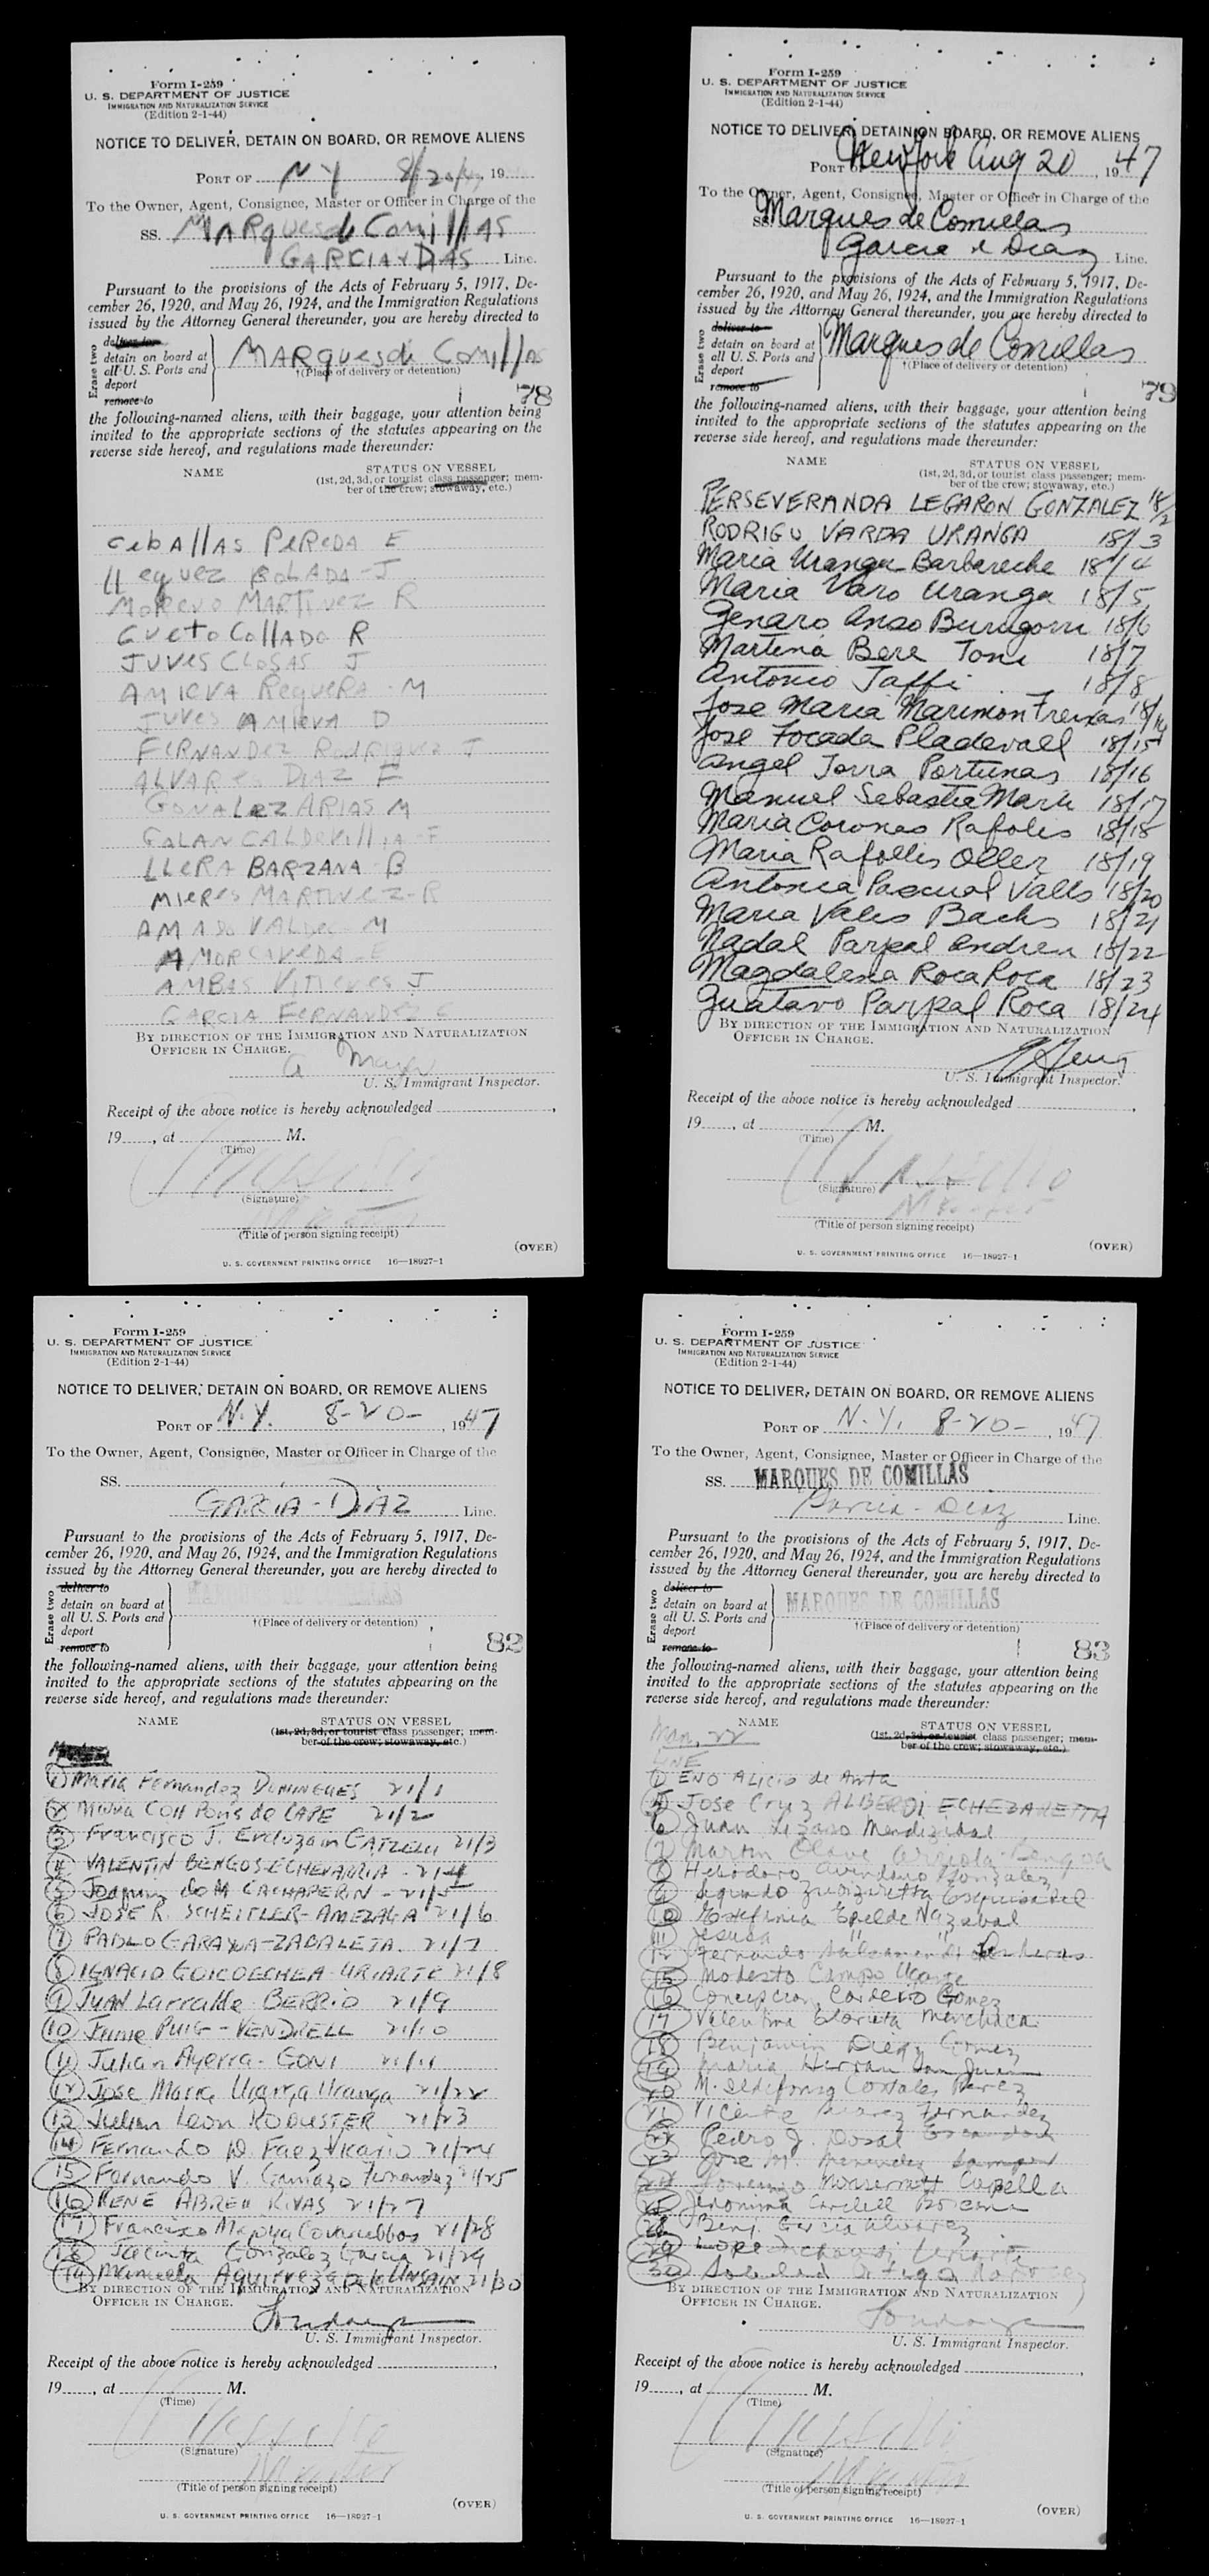 Form I-259
U. S. DEPARTMENT OF JUSTICE
IMMIGRATION AND NATURALIZATION SERVICE
(Edition 2-1-44)
NOTICE TO DELIVER, DETAIN ON BOARD, OR REMOVE ALIENS
PORT OF NY 8/20/47, 19
To the Owner, Agent, Consignee, Master or Officer in Charge of the
SS. MARquesde ComillAS
GARCIA Y DIAS Line.
Pursuant to the provisions of the Acts of February 5, 1917, De-
cember 26, 1920, and May 26, 1924, and the Immigration Regulations
issued by the Attorney General thereunder, you are hereby directed to
Erase two
deliver to
detain on board at
all U. S. Ports and
deport
remove to
MARquesde Comillas
†(Place of delivery or detention)
78
the following-named aliens, with their baggage, your attention being
invited to the appropriate sections of the statutes appearing on the
reverse side hereof, and regulations made thereunder:
NAME
STATUS ON VESSEL
(1st, 2d, 3d, or tourist class passenger; mem-
ber of the crew; stowaway, etc.)
CebAllAS PeReDA E
BOLADA J
MORENO MARTINEZ R
CuetoCollADO R
JUVES CLOSAS J
AMIEVA RegueRA M
JUVES AMIEVA D
FERNANDEZ RODRIGUEZ J
ALVARES DIAZ F
GONALEZ ARIAS M
GALAN CALDEVILLIA E
LLERA BARZANA B
MIERES MARTINEZ R
AMADO M
E
AMBAS J
GARCIA FERNANDEZ E
BY DIRECTION OF THE IMMIGRATION AND NATURALIZATION
OFFICER IN CHARGE.
U. S. Immigrant Inspector.
Receipt of the above notice is hereby acknowledged
19, at M.
(Time)
(Signature)
(Title of person signing receipt)
(OVER)
U. S. GOVERNMENT PRINTING OFFICE 16—18927-1
Form I-259
U. S. DEPARTMENT OF JUSTICE
IMMIGRATION AND NATURALIZATION SERVICE
(Edition 2-1-44)
NOTICE TO DELIVER, DETAIN ON BOARD, OR REMOVE ALIENS
PORT OF New York Aug 20, 1947
To the Owner, Agent, Consignee, Master or Officer in Charge of the
SS. Marques de Comillas
Garcia & Diaz Line.
Pursuant to the provisions of the Acts of February 5, 1917, De-
cember 26, 1920, and May 26, 1924, and the Immigration Regulations
issued by the Attorney General thereunder, you are hereby directed to
Erase two
deliver to
detain on board at
all U. S. Ports and
deport
remove to
Marques de Comillas
†(Place of delivery or detention)
79
the following-named aliens, with their baggage, your attention being
invited to the appropriate sections of the statutes appearing on the
reverse side hereof, and regulations made thereunder:
NAME
STATUS ON VESSEL
(1st, 2d, 3d, or tourist class passenger; mem-
ber of the crew; stowaway, etc.)
PERSEVERANDA LEGARON GONZALEZ 18/2
RODRIGO VARDA URANGA 18/3
Maria Uranga Barbareche 18/4
Maria Varo Uranga 18/5
Genaro Anso 18/6
Martina Bere Toni 18/7
Antonio Jaffi 18/8
Jose Maria Marimon Freixas 18/14
Jose Focada Pladevall 18/15
Angel Jorra Portunas 18/16
Manuel Sebastia Marti 18/17
Maria Coronas Rafolis 18/18
Maria Rafollis Oller 18/19
Antonia Pascual Valls 18/20
Maria Valls Bachs 18/21
Nadal Parpal Andreu 18/22
Magdalena Roca Roca 18/23
Guatavo Parpal Roca 18/24
BY DIRECTION OF THE IMMIGRATION AND NATURALIZATION
OFFICER IN CHARGE.
U. S. Immigrant Inspector.
Receipt of the above notice is hereby acknowledged
19, at M.
(Time)
(Signature)
(Title of person signing receipt)
(OVER)
U. S. GOVERNMENT PRINTING OFFICE 16—18927-1
Form I-259
U. S. DEPARTMENT OF JUSTICE
IMMIGRATION AND NATURALIZATION SERVICE
(Edition 2-1-44)
NOTICE TO DELIVER, DETAIN ON BOARD, OR REMOVE ALIENS
PORT OF N.Y. 8-20-, 1947
To the Owner, Agent, Consignee, Master or Officer in Charge of the
SS.
GARCIA-DIAZ Line.
Pursuant to the provisions of the Acts of February 5, 1917, De-
cember 26, 1920, and May 26, 1924, and the Immigration Regulations
issued by the Attorney General thereunder, you are hereby directed to
Erase two
deliver to
detain on board at
all U. S. Ports and
deport
remove to
MARQUES DE COMILLAS
†(Place of delivery or detention)
82
the following-named aliens, with their baggage, your attention being
invited to the appropriate sections of the statutes appearing on the
reverse side hereof, and regulations made thereunder:
NAME
STATUS ON VESSEL
(1st, 2d, 3d, or tourist class passenger; mem-
ber of the crew; stowaway, etc.)
1 Maria Fernandez DOMINGUES 21/1
2 Coll Pons de CAPE 21/2
3 Francisco J. 21/3
4 VALENTIN BENGOS-ECHEVARRIA - 21/4
5 Joaquin CACHAPERIN - 21/5
6 JOSE R. SCHEITLER-AMEZAGA 21/6
7 PABLO GARAYUA-ZABALETA. 21/7
8 IGNACIO GOICOECHEA-URIARTE 21/8
9 JUAN Larralde BERRIO 21/9
10 Jaime PUIG-VENDRELL 21/10
11 Julian Ayerra-GONI 21/11
12 Jose Maria Uranga Uranga 21/22
13 Julian Leon RODUSTER 21/23
14 Fernando D. Faez 21/24
15 Fernando V. Gamazo Fernandez 21/25
16 RENE ABREU RIVAS 21/27
17 Francisco 21/28
18 Jacinta Gonzalez Garcia 21/29
19 Manuela 21/30
BY DIRECTION OF THE IMMIGRATION AND NATURALIZATION
OFFICER IN CHARGE.
U. S. Immigrant Inspector.
Receipt of the above notice is hereby acknowledged
19, at M.
(Time)
(Signature)
Master
(Title of person signing receipt)
(OVER)
U. S. GOVERNMENT PRINTING OFFICE 16—18927-1
Form I-259
U. S. DEPARTMENT OF JUSTICE
IMMIGRATION AND NATURALIZATION SERVICE
(Edition 2-1-44)
NOTICE TO DELIVER, DETAIN ON BOARD, OR REMOVE ALIENS
PORT OF N.Y. 8-20-, 1947
To the Owner, Agent, Consignee, Master or Officer in Charge of the
SS. MARQUES DE COMILLAS
Garcia-Diaz Line.
Pursuant to the provisions of the Acts of February 5, 1917, De-
cember 26, 1920, and May 26, 1924, and the Immigration Regulations
issued by the Attorney General thereunder, you are hereby directed to
Erase two
deliver to
detain on board at
all U. S. Ports and
deport
remove to
MARQUES DE COMILLAS
†(Place of delivery or detention)
83
the following-named aliens, with their baggage, your attention being
invited to the appropriate sections of the statutes appearing on the
reverse side hereof, and regulations made thereunder:
Man. 22
NAME
STATUS ON VESSEL
(1st, 2d, 3d, or tourist class passenger; mem-
ber of the crew; stowaway, etc.)
LINE
1 ENO Alicio de Anta
Jose Cruz ALBERDI ECHEZARETTA
6 Juan Lizaso Mendizabal
7 Martin Olave Arriola-Bengoa
8 Heliodoro Avendano Gonzalez
9 Segundo
10 Estefania Epelde Nazabal
11 Jesusa " "
Fernando
15 Modesto Campo Ugarte
16 Concepcion Cordero Gomez
17 Valentina Glorieta Menchaca
18 Benjamin Diego Gomez
19 Maria Herran San Juan
20 M. Ildefonso Costales Perez
21 Vicente Suarez Fernandez
22 Pedro J. Dosal Escandon
23 Jose M. Menendez
24 Lorenzo Monserratt Capella
25 Jeronima Cardell
28 Benj Garcia Alvarez
29 Uriarte
30 Soledad
BY DIRECTION OF THE IMMIGRATION AND NATURALIZATION
OFFICER IN CHARGE.
U. S. Immigrant Inspector.
Receipt of the above notice is hereby acknowledged
19, at M.
(Time)
(Signature)
Master
(Title of person signing receipt)
(OVER)
U. S. GOVERNMENT PRINTING OFFICE 16—18927-1